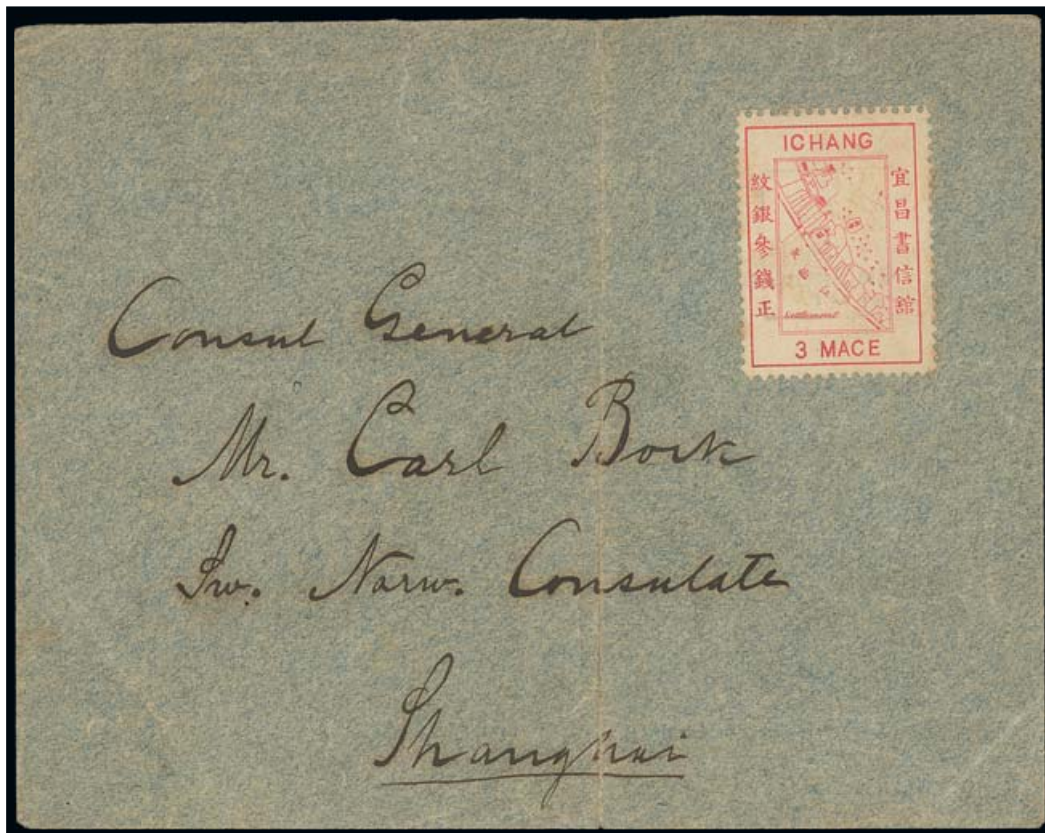 ICHANG
宜昌書信館
紋銀參錢正
Settlement
3 MACE
Consul General
Mr. Carl Bock
Sw. Norw. Consulate
Shanghai